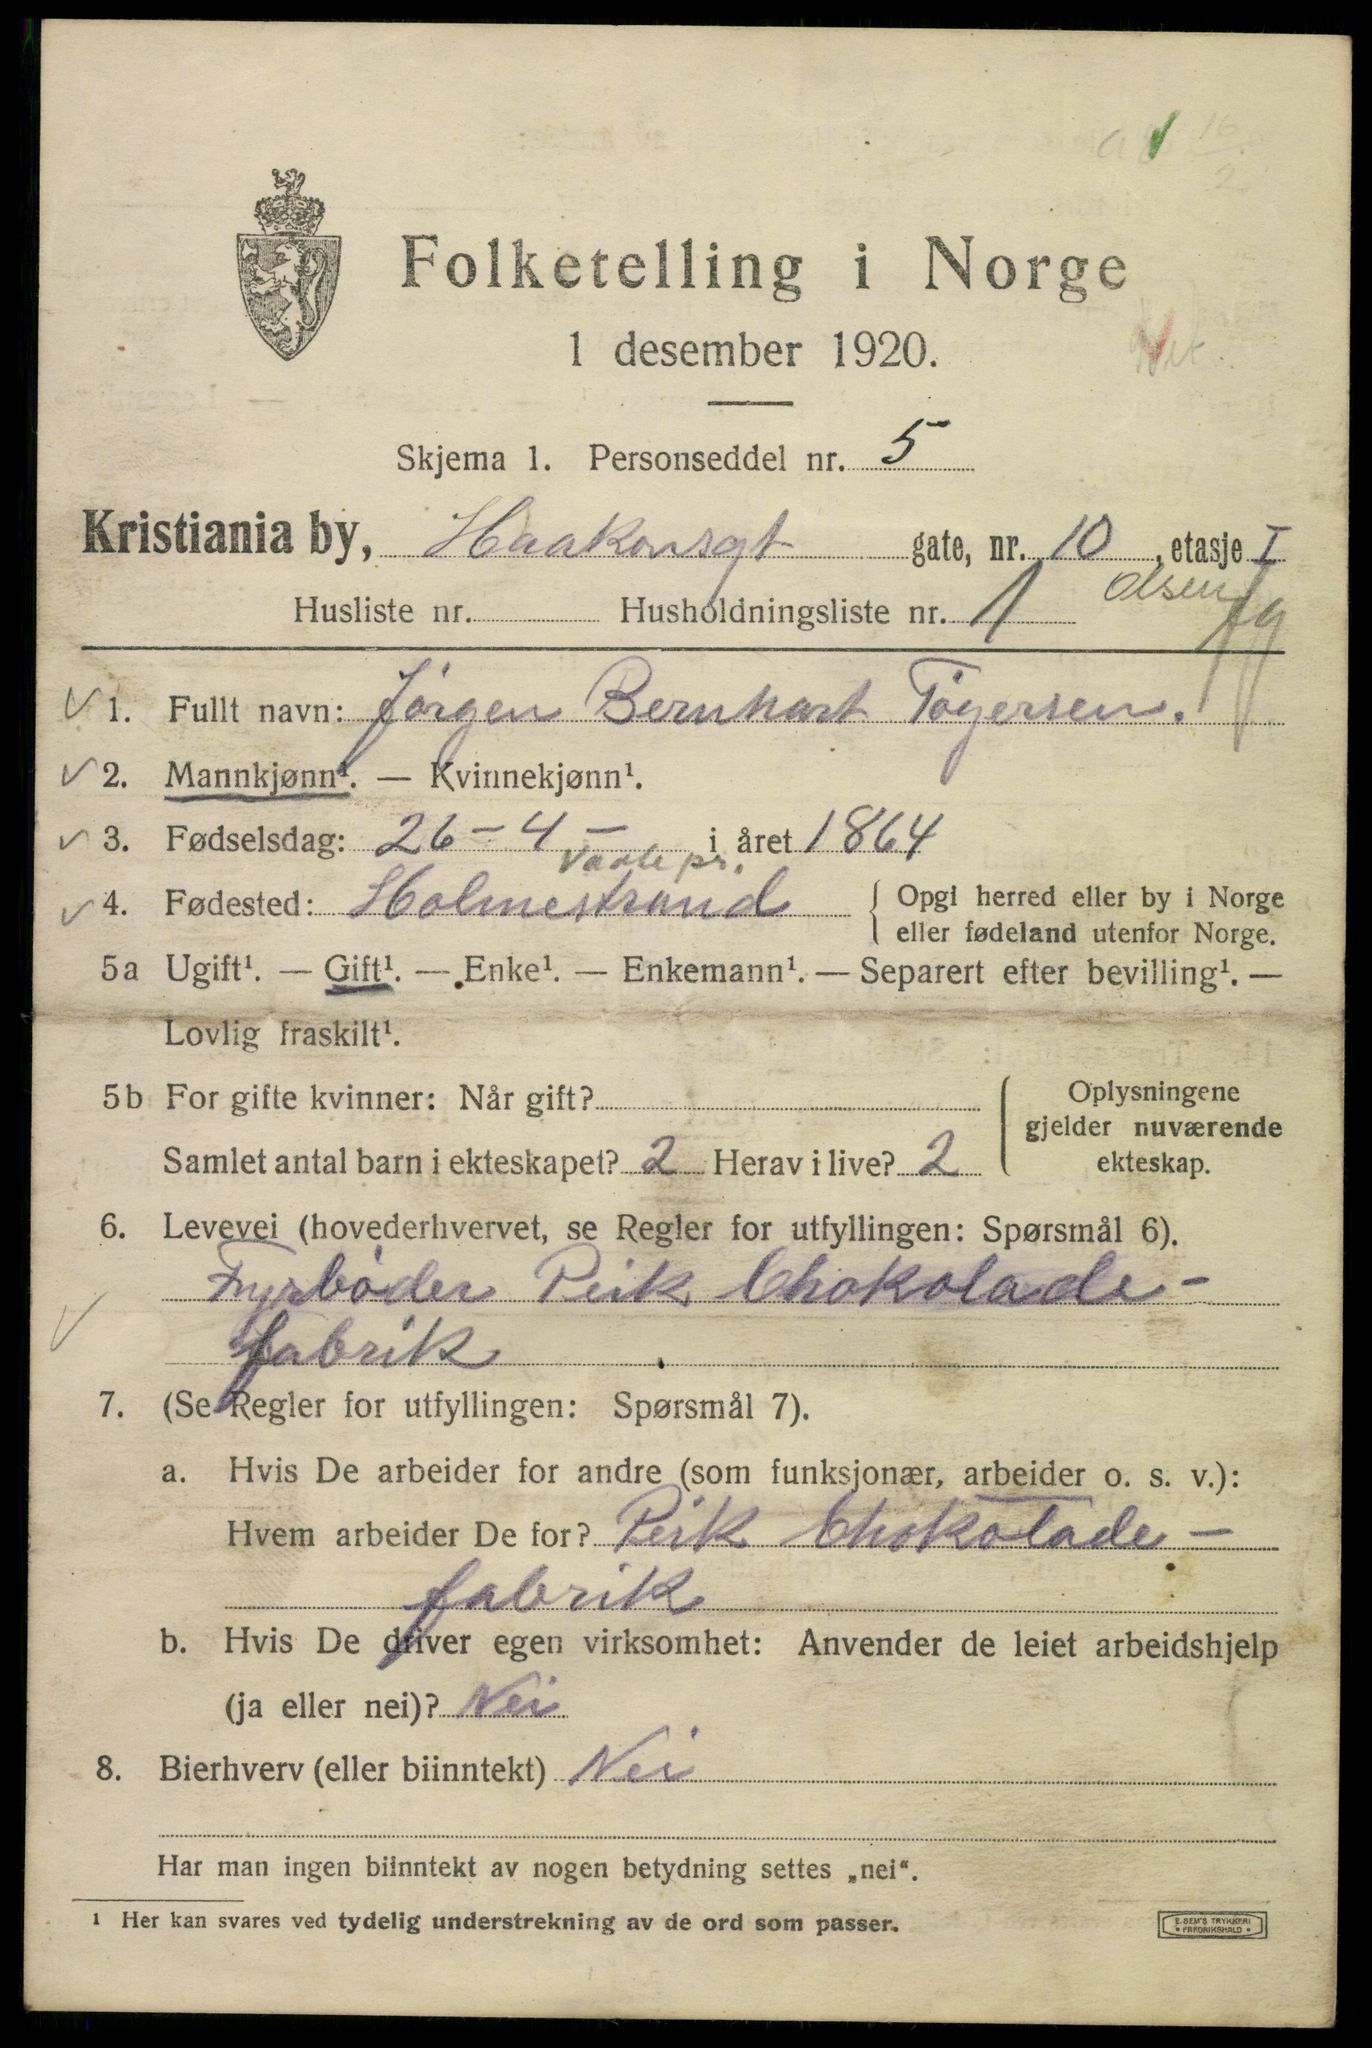 16
2
Folketelling i Norge
1 desember 1920.
Skjema 1. Personseddel nr. 5
Kristiania by, Haakonsgt gate, nr. 10, etasje I
Husliste nr. Husholdningsliste nr. 1 Olsen
1. Fullt navn: Jörgen Bernhart Tögersen.
2. Mannkjønn¹. — Kvinnekjønn¹.
3. Fødselsdag: 26 – 4 – i året 1864
Vaale pr.
4. Fødested: Holmestrand { Opgi herred eller by i Norge
eller fødeland utenfor Norge.
5a Ugift¹. — Gift¹. — Enke¹. — Enkemann¹. — Separert efter bevilling¹. —
Lovlig fraskilt¹.
5b For gifte kvinner: Når gift? { Oplysningene
gjelder nuværende
Samlet antal barn i ekteskapet? 2 Herav i live? 2 ekteskap.
6. Levevei (hovederhvervet, se Regler for utfyllingen: Spørsmål 6).
Fyrbøder Perk Chokolade-
fabrik
7. (Se Regler for utfyllingen: Spørsmål 7).
a. Hvis De arbeider for andre (som funksjonær, arbeider o. s. v.):
Hvem arbeider De for? Perk Chokolade-
fabrik
b. Hvis De driver egen virksomhet: Anvender de leiet arbeidshjelp
(ja eller nei)? Nei
8. Bierhverv (eller biinntekt) Nei
Har man ingen biinntekt av nogen betydning settes „nei“.
¹ Her kan svares ved tydelig understrekning av de ord som passer.
E. SEM'S TRYKKERI
FREDRIKSHALD